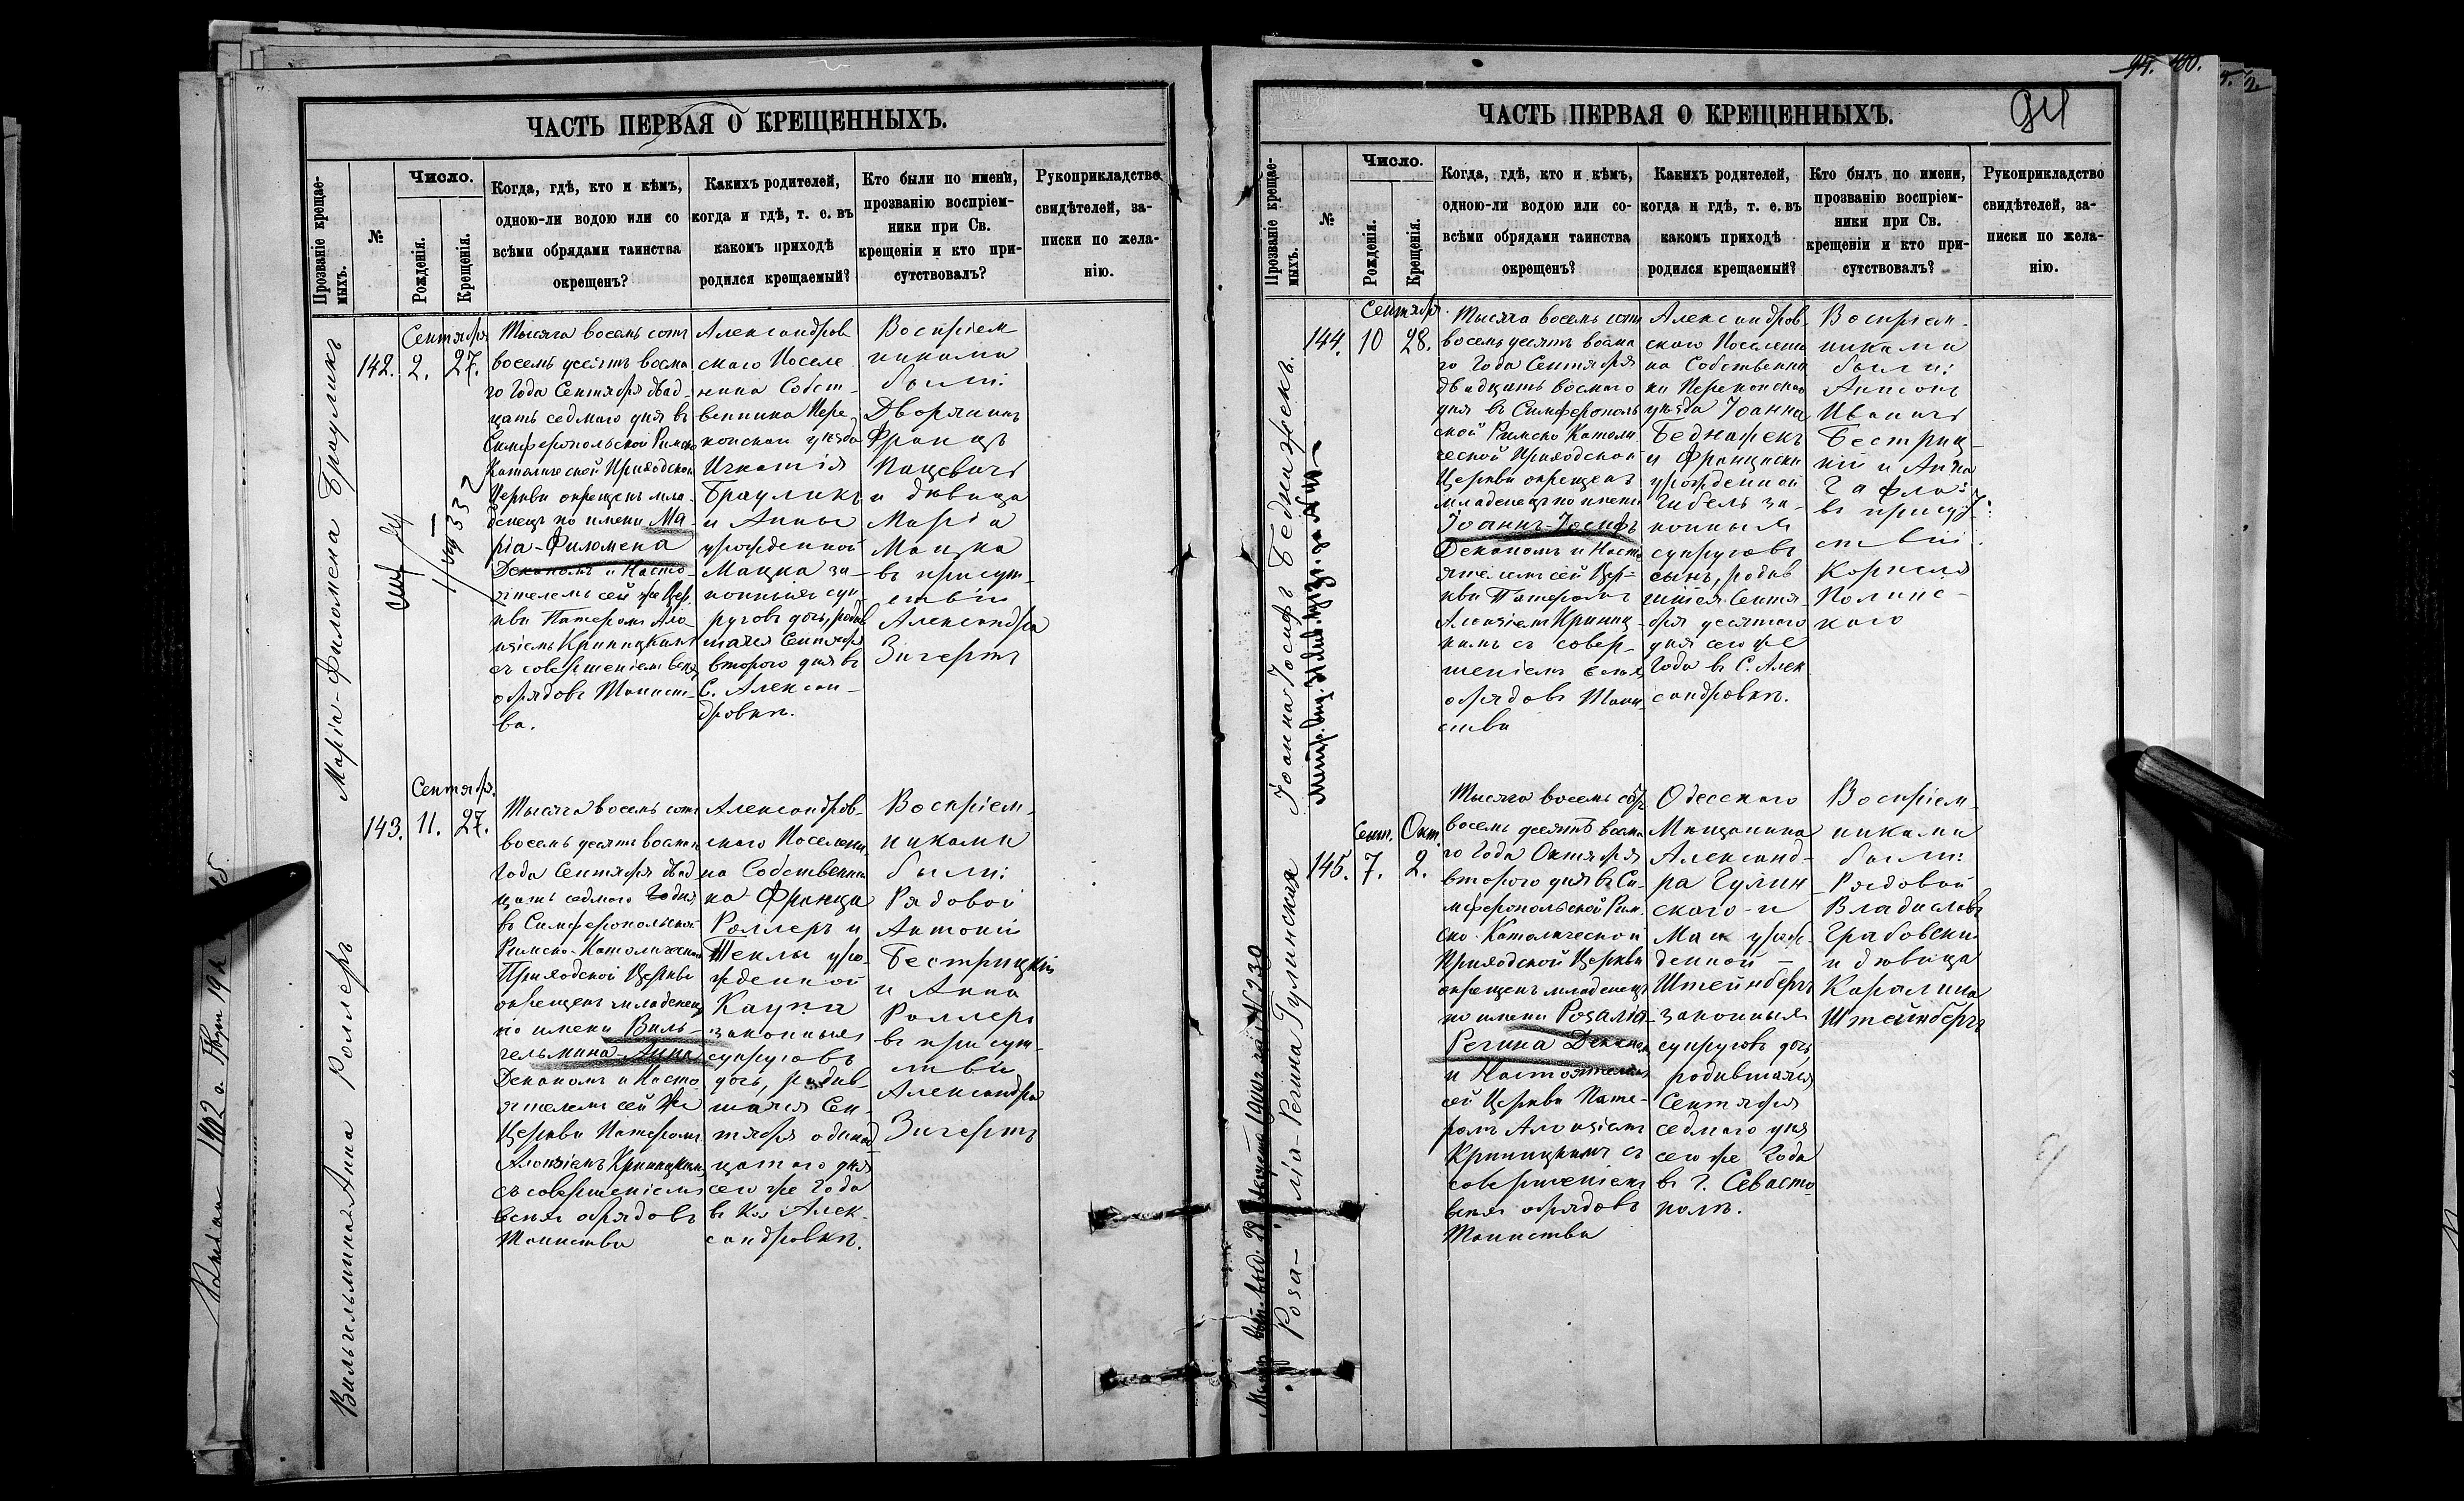 ЧАСТЬ ПЕРВАЯ О КРЕЩЕННЫХЪ.
Прозваніе крещае-
мыхъ.
№
Число.
Рожденія.
Крещенія.
Когда, гдѣ, кто и кѣмъ,
одною-ли водою или со
всѣми обрядами таинства
окрещенъ?
Какихъ родителей,
когда и гдѣ, т. е. въ
какомъ приходѣ
родился крещаемый?
Кто были по имени,
прозванію воспріем-
ники при Св.
крещеніи и кто при-
сутствовалъ?
Рукоприкладство
свидѣтелей, за-
писки по жела-
нію.
Марія-Филомена Брауликъ
142.
Сентября
2.
27.
Тысяча восемь сотъ
восемь десятъ восма
го Года Сентября двад-
цать седмаго дня въ
Симферопольской Римско
Католической Приходской
Церкви окрещенъ мла-
денецъ по имени Ма-
рія-Филомена
Деканомъ и Насто-
ятелемъ сей же Цер-
кви Патеромъ Ало-
изіемъ Криницкимъ
съ совершеніемъ всѣхъ
обрядовъ Таинст-
ва.
Александров
скаго Поселе
нина Собст-
венника Пере-
копскаго уѣзда
Игнатія
Брауликъ
и Анны
урожденной
Мацка за-
конныхъ суп-
руговъ дочь, родив
шаяся Сентября
втораго дня въ
С. Алексан-
дровкѣ.
Воспріем-
никами
были:
Дворянинъ
Францъ
Пацевичъ
и дѣвица
Марія
Мацка
въ присут-
ствіи
Александра
Зигертъ
Вильгельмина-Анна Роллеръ
143.
Сентябр.
11.
27.
Тысяча восемь сотъ
восемь десятъ восмаго
Года Сентября двад-
цать седмаго дня
въ Симферопольской
Римско-Католической
Приходской Церкви
окрещенъ младенецъ
по имени Виль-
гельмина-Анна
Деканомъ и Насто-
ятелемъ сей же
Церкви Патеромъ
Алоизіемъ Криницкимъ
съ совершеніемъ
всѣхъ обрядовъ
Таинства
Александров-
скаго Поселени-
на Собственни-
ка Франца
Роллеръ и
Теклы уро-
жденной
Каупа
законныхъ
супруговъ
дочь, родив-
шаяся Сен-
тября одинад-
цатаго дня
сего же Года
въ Кол. Алек-
сандровкѣ.
Воспріем-
никами
были:
Рядовой
Антоній
Бестрицкій
и Анна
Роллеръ
въ присут-
ствіи
Александра
Зигертъ
ЧАСТЬ ПЕРВАЯ О КРЕЩЕННЫХЪ.
94
Прозваніе крещае-
мыхъ.
№
Число.
Рожденія.
Крещенія.
Когда, гдѣ, кто и кѣмъ,
одною-ли водою или со-
всѣми обрядами таинства
окрещенъ?
Какихъ родителей,
когда и гдѣ, т. е. въ
какомъ приходѣ
родился крещаемый?
Кто былъ по имени,
прозванію воспріем-
ники при Св.
крещеніи и кто при-
сутствовалъ?
Рукоприкладство
свидѣтелей, за-
писки по жела-
нію.
Іоаннъ-Іосифъ Беднажекъ.
144.
Сентябр.
10
28.
Тысяча восемь сотъ
восемь десятъ восма
го Года Сентября
двадцать восмаго
дня въ Симферополь
ской Римско Католи
ческой Приходской
Церкви окрещенъ
младенецъ по имени
Іоаннъ-Іосифъ
Деканомъ и Насто
ятелемъ сей Цер-
кви Патеромъ
Алоизіемъ Криниц-
кимъ съ совер-
шеніемъ всѣхъ
обрядовъ Таин-
ства
Александров-
скаго Поселени
на Собственни
ка Перекопскаго
уѣзда Іоанна
Беднажекъ
и Франциски
урожденной
Гибель за-
конныхъ
супруговъ
сынъ, родив
шійся Сентя-
бря десятаго
дня сего же
Года въ С. Алек
сандровкѣ.
Воспріем-
никами
были:
Антонъ
Иванъ
Бестриц-
кій и Анна
въ присут-
ствіи
Корнеля
Полинс-
каго
Розалія-Регина Гулинская
145.
Сент.
7.
Окт.
2.
Тысяча восемь сотъ
восемь десятъ восма
го Года Октября
втораго дня въ Си-
мферопольской Рим-
ско-Католической
Приходской Церкви
окрещенъ младенецъ
по имени Розалія-
Регина Деканомъ
и Настоятелемъ
сей Церкви Пате-
ромъ Алоизіемъ
Криницкимъ съ
совершеніемъ
всѣхъ обрядовъ
Таинства
Одесскаго
Мѣщанина
Александ-
ра Гулин-
скаго и
урож-
денной
Штейнбергъ
законныхъ
супруговъ дочь
родившаяся
Сентября
седмаго дня
сего же Года
въ г. Севасто-
полѣ.
Воспріем-
никами
были:
Рядовой
Владиславъ
Грабовски
и дѣвица
Каралина
Штейнбергъ